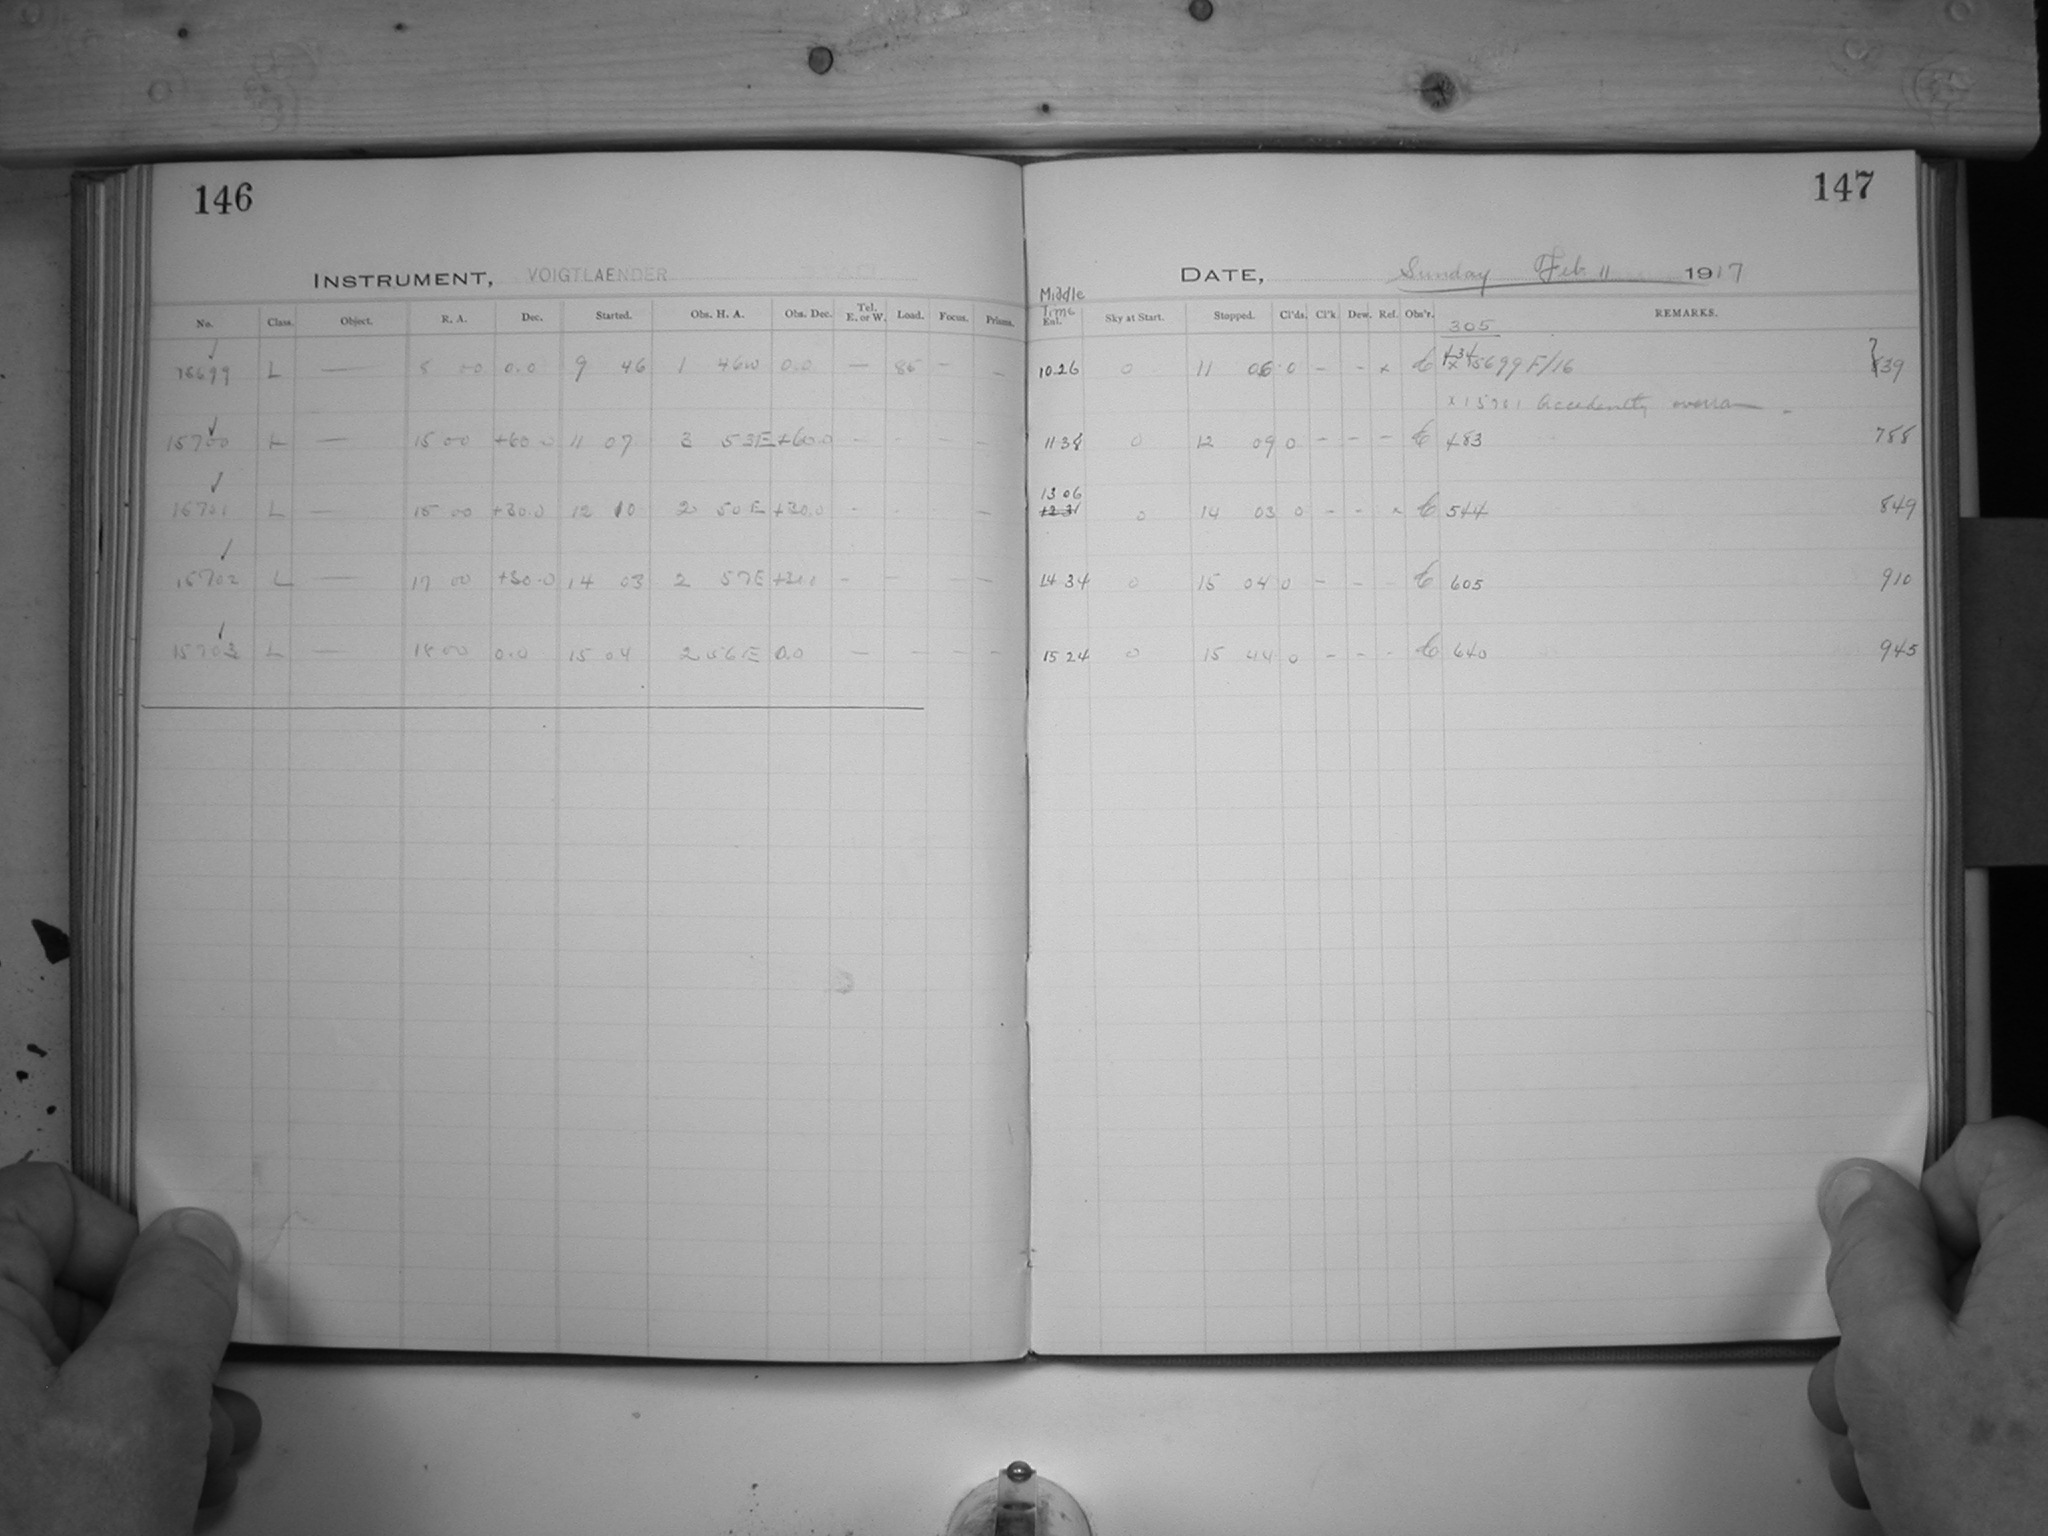 146
INSTRUMENT, VOIGTLAENDER
No. Class. Object. R. A. Dec. Started. Obs. H. A. Obs. Dec. Tel. E. or W. Load. Focus. Prisms.
15699 L — 8 00 0.0 9 46 1 46W 0.0 — 85 – –
15700 L — 15 00 +60.0 11 07 3 53E +60.0 – – – –
15701 L — 15 00 +30.0 12 10 2 50E +30.0 – – –
15702 L — 17 00 +30.0 14 03 2 57E +30.0 – – –
15703 L — 18 00 0.0 15 04 2 56E 0.0 — – – –
147
DATE, Sunday Feb. 11 1917
Middle Time Ent. Sky at Start. Stopped. Cl'ds. Cl'k Dew. Ref. Obs'r. REMARKS.
305
10 26 0 11 06 0 – – x x 15699 F/16 739
x 15701 Accidently overran
11 38 0 12 09 0 – – – 483 788
13 06
0 14 03 0 – – x 544 849
14 34 0 15 04 0 – – – 605 910
15 24 0 15 44 0 – – – 640 945